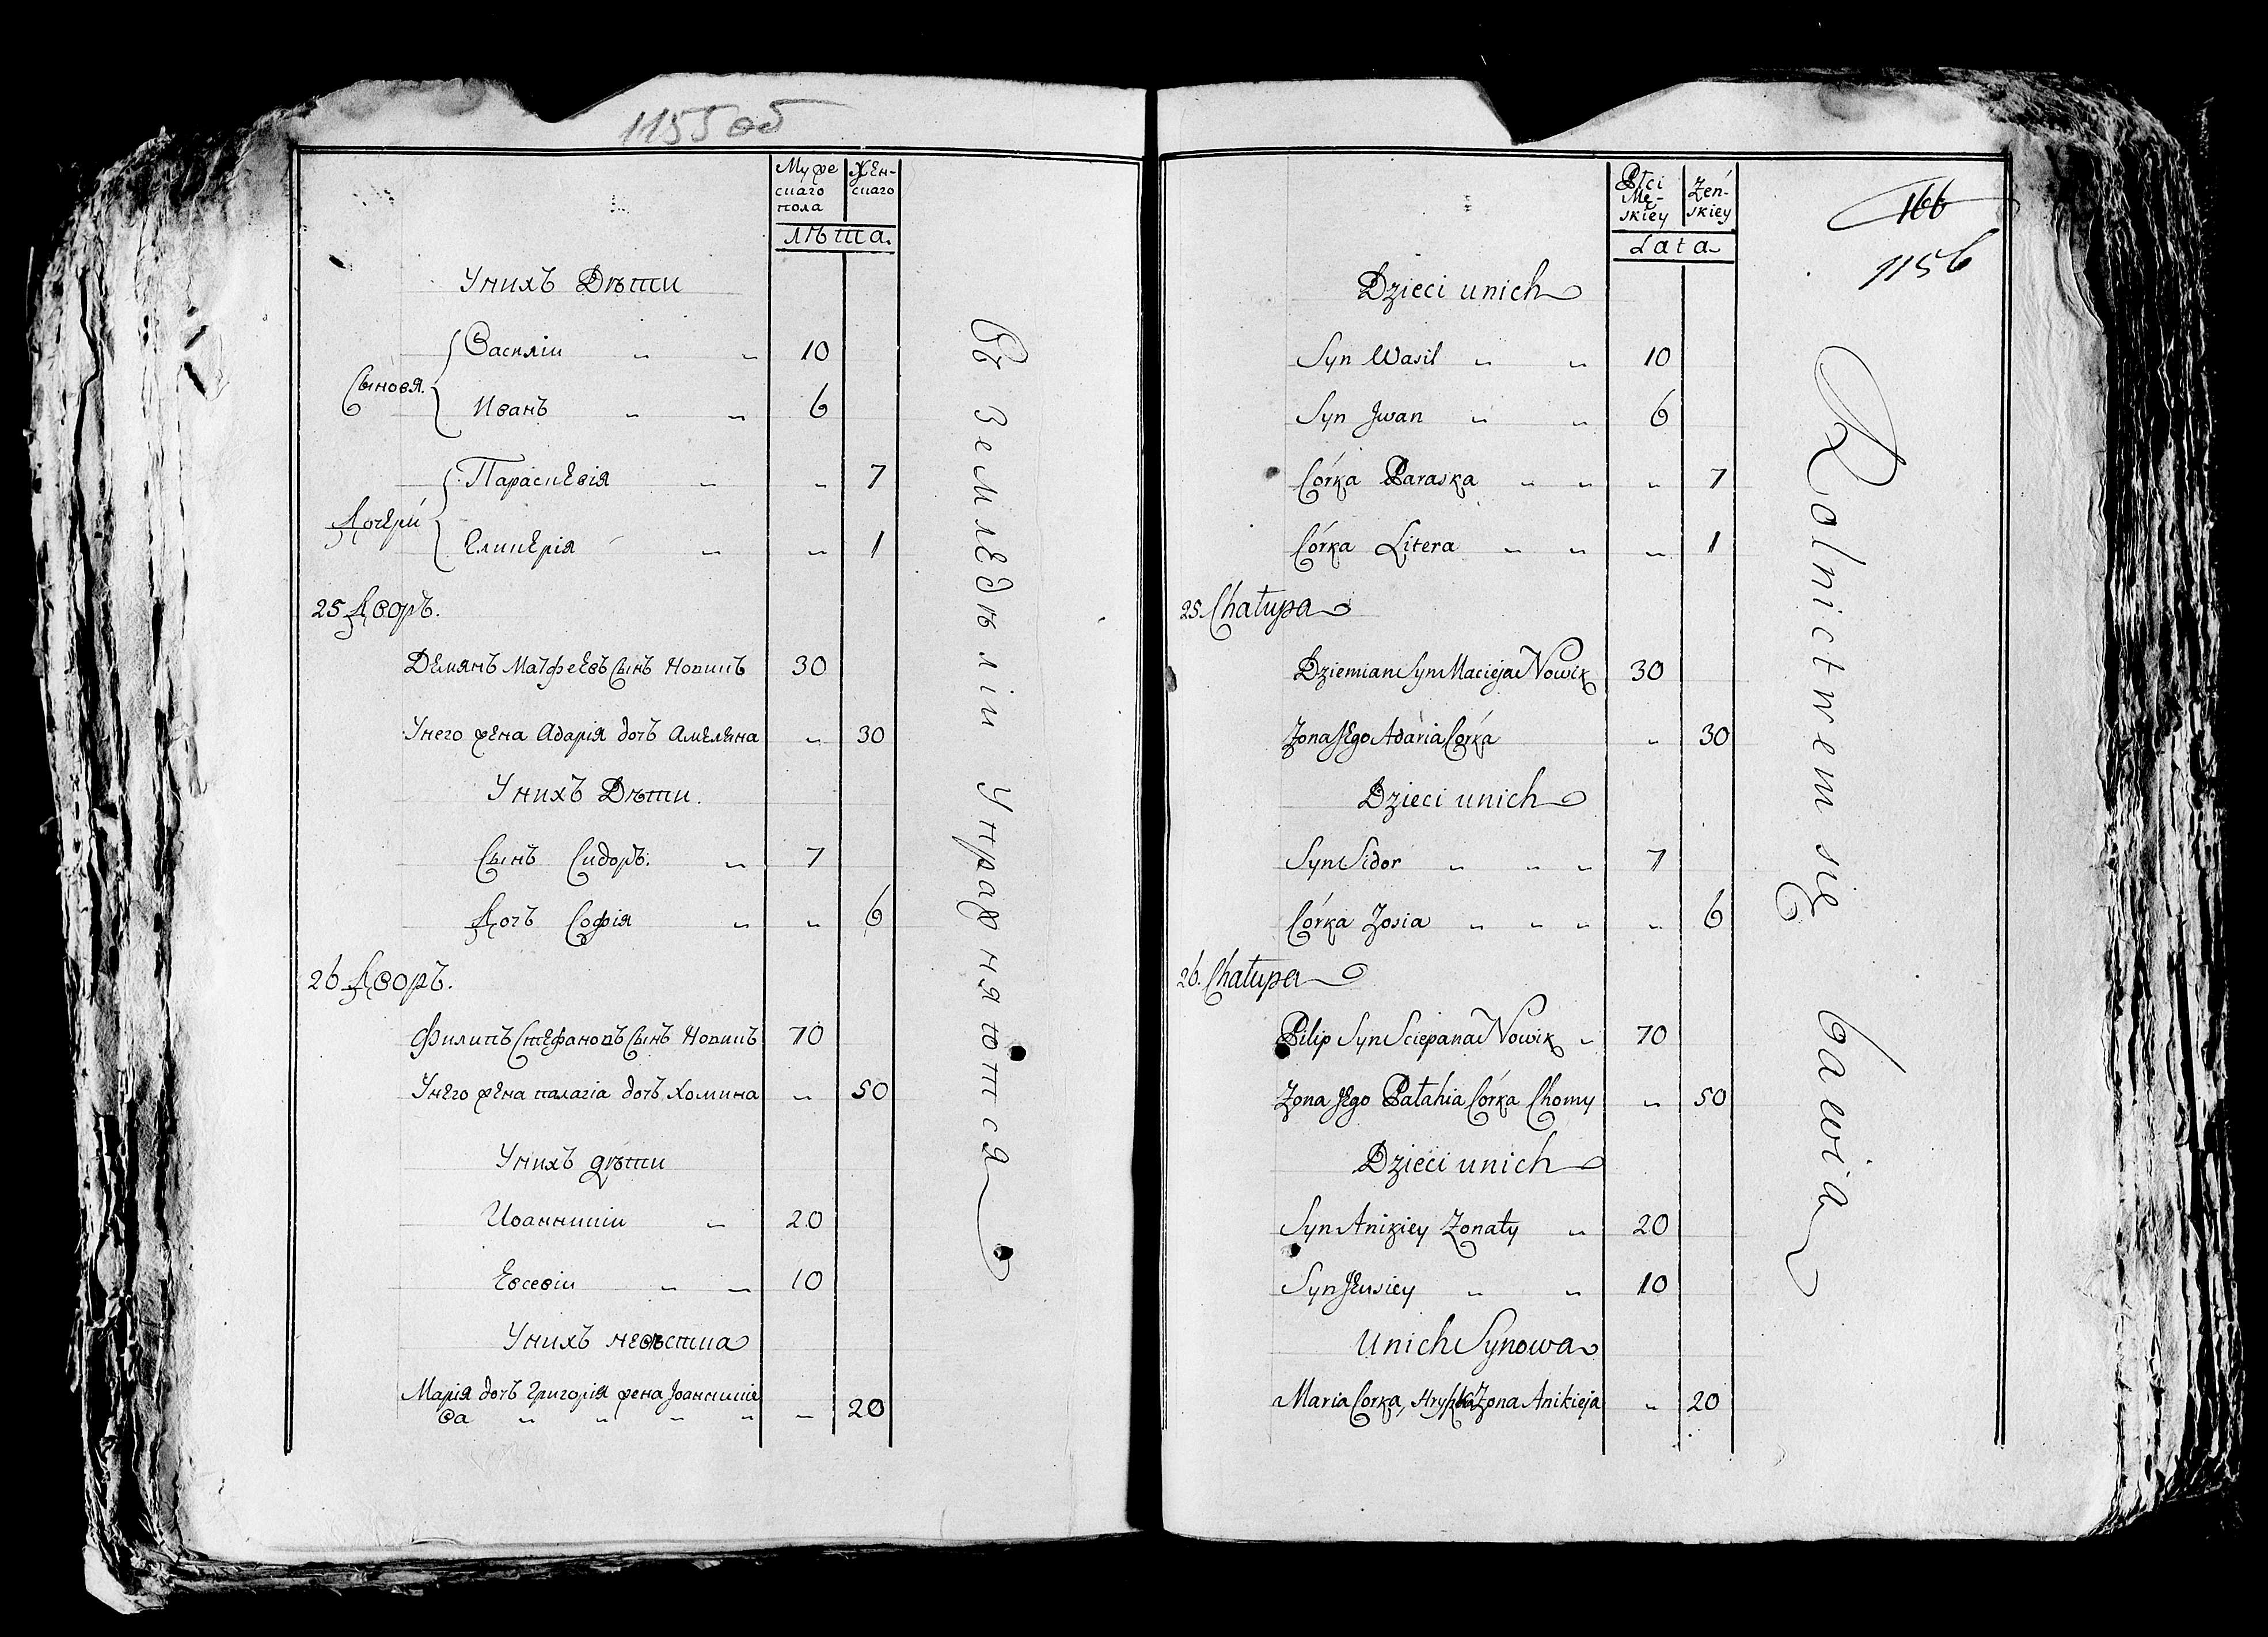 1155 об
Муже
скаго
пола
Жен-
скаго
лѣта.
Унихъ Дѣти
Сыновя.
Василіи " " 10
Иванъ " " 6
Дочери
Параскевія " " 7
Гликерія " " 1
25 Дворъ.
Демянъ Матфеевъ Сынъ Новикъ 30
Унего жена Адарія дочъ Амеляна " 30
Унихъ Дѣти.
Сынъ Сидоръ. " 7
Дочъ Софія " " 6
26 Дворъ.
Филипъ Стефановъ Сынъ Новикъ 70
Унего жена палагіа дочъ Хомина " 50
Унихъ дѣти
Иоанникіи " 20
Евсевіи " " 10
Унихъ невѣстка
Марія дочъ Григорія жена Іоанникіе
ва " " " " " 20
Въ земледѣліи Упражняются
Płci
Mę-
skiey
Żeń-
skiey
Lata
166
1156
Dzieci unich
Syn Wasil " " 10
Syn Jwan " " 6
Córka Paraska " " " 7
Córka Litera " " " 1
25. Chałupa
Dziemian Syn Macieja Nowik 30
Zona Jego Adaria Córka " 30
Dzieci unich
Syn Sidor " " " 7
Córka Zosia " " " " 6
26. Chałupa
Pilip Syn Sciepana Nowik " 70
Zona Jego Pałahia Córka Chomy " 50
Dzieci unich
Syn Anikiey Zonaty " 20
Syn Jewsiey " " 10
Unich Synowa
Maria Corka, Hryszka Zona Anikieja " 20
Rolnictwem się bawia